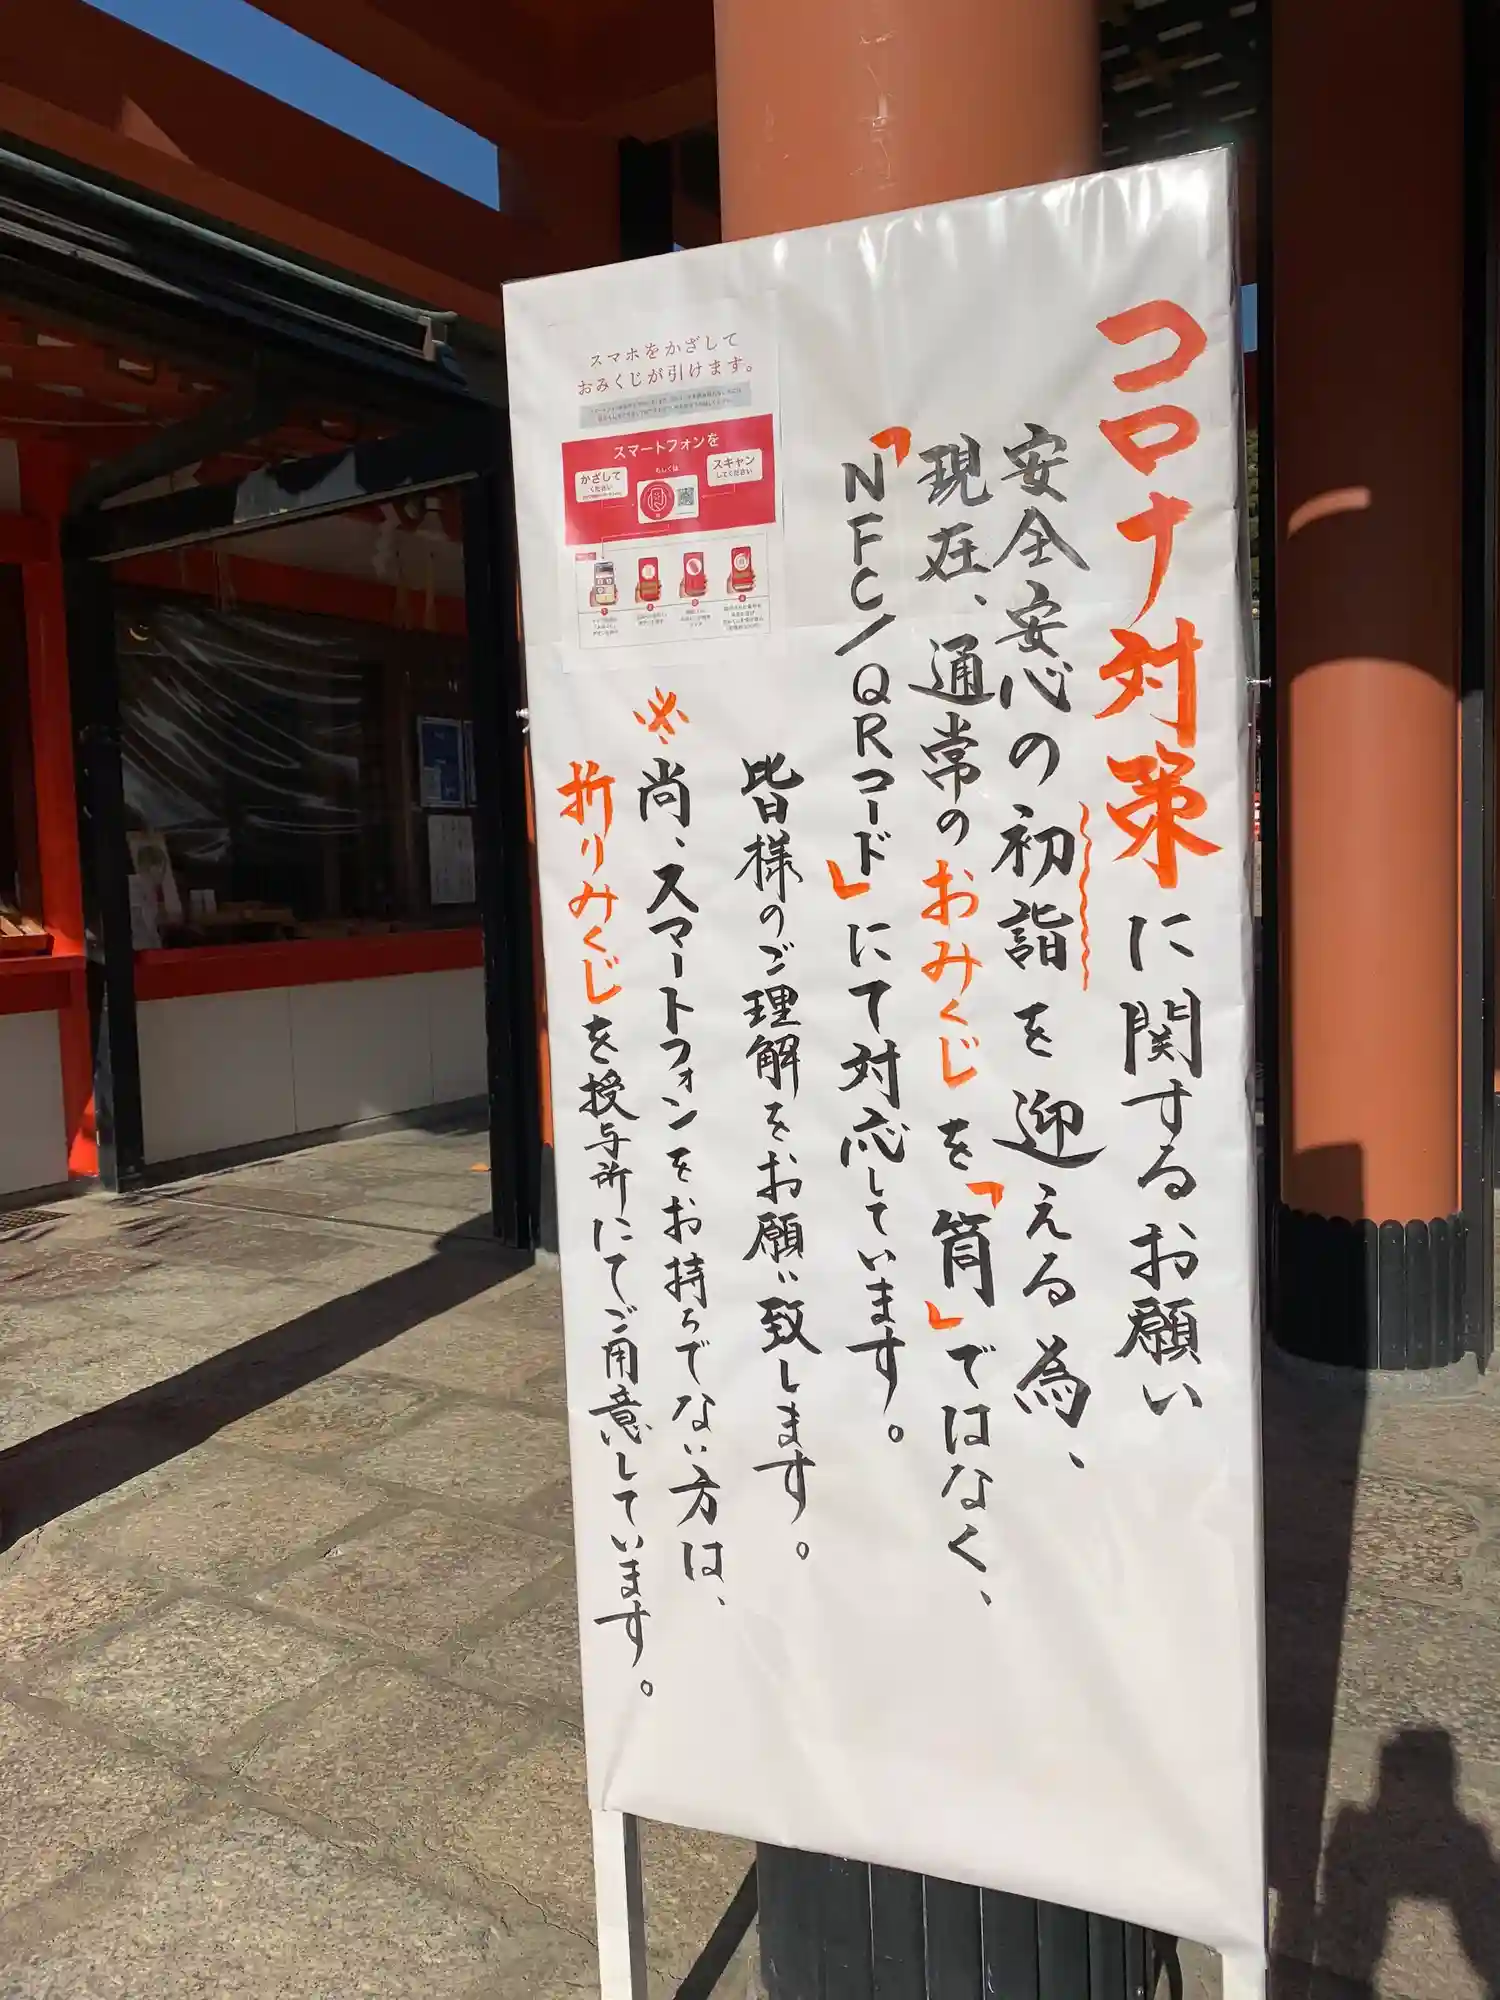 コロナ対策に関するお願い
安全安心の初詣を迎える為、
現在、通常のおみくじを「筒」ではなく、
「NFC/QRコード」にて対応しています。
皆様のご理解をお願い致します。
※尚、スマートフォンをお持ちでない方は、
折りみくじを授与所にてご用意しています。
スマホをかざして
おみくじが引けます。
スマートフォンを
かざして
ください
もしくは
スキャン
してください